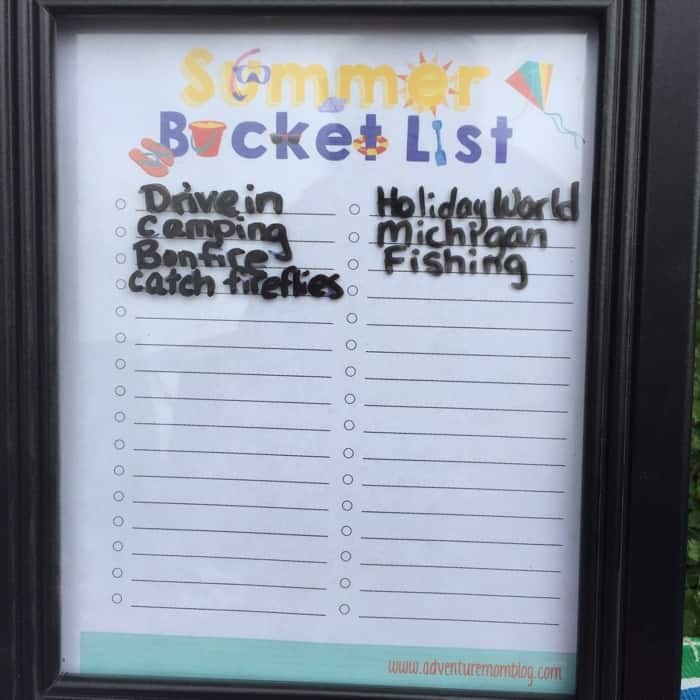 Summer
Bucket List
Drive in
Camping
Bonfire
Catch fireflies
Holiday World
Michigan
Fishing
www.adventuremomblog.com